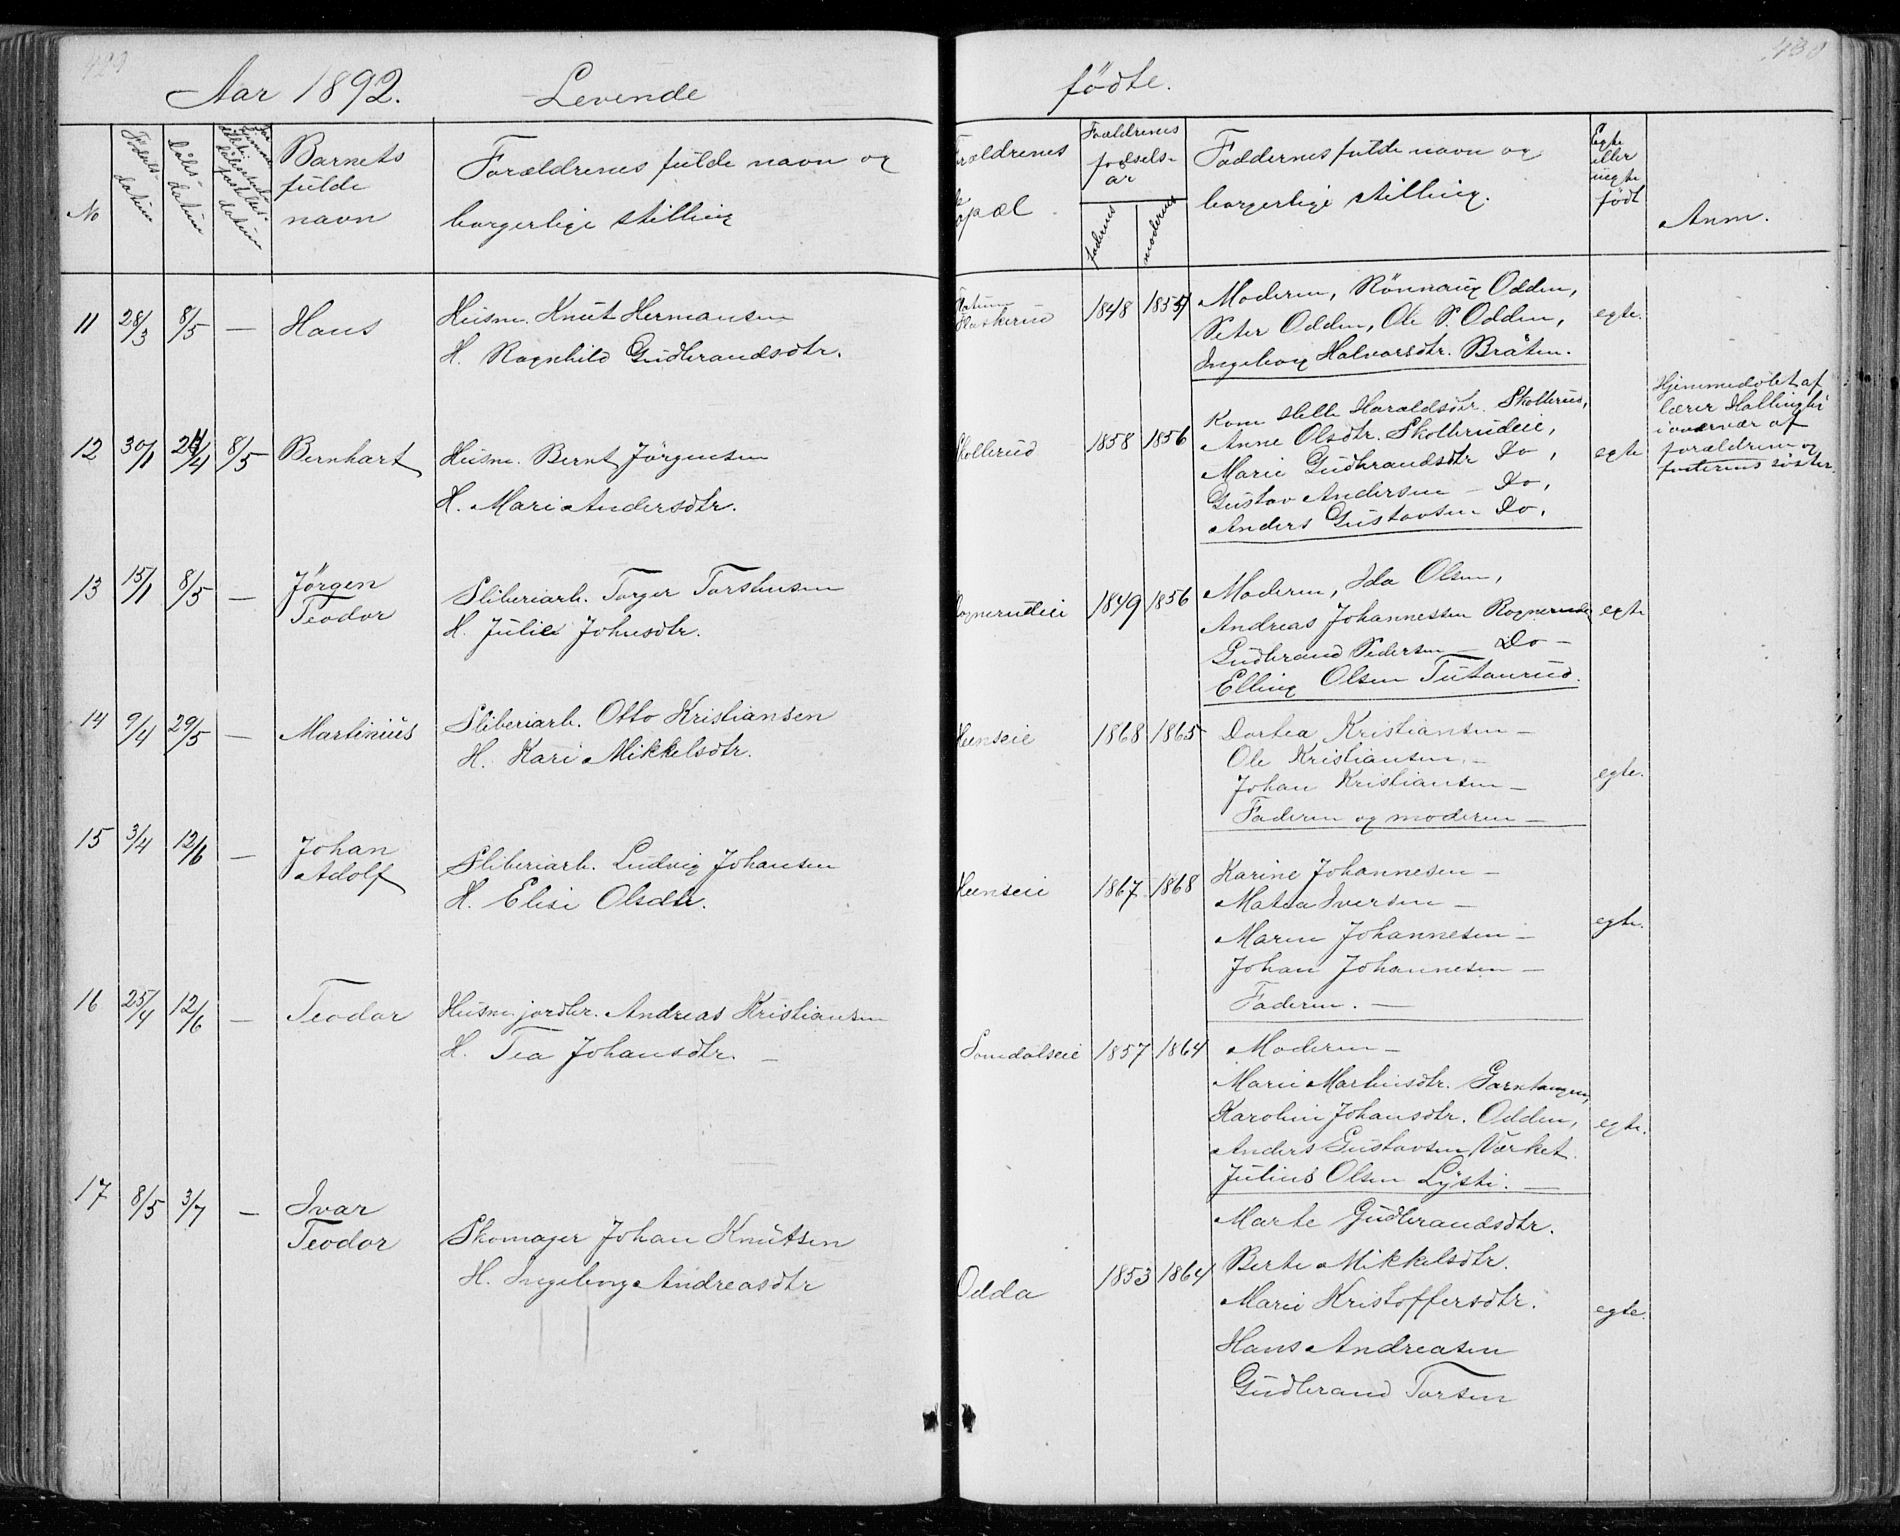 429
Aar 1892. Levende
No
Fødsels-datum
Dåbs-datum
Barnets fulde navn
Forældrenes fulde navn og borgerlige stilling
11 28/3 8/5 — Hans
Husm. Knut Hermansen
H. Ragnhild Gudbrandsdtr.
12 30/1 24/4 8/5 Bernhart
Husm. Bernt Jörgensen
H. Mari Andersdtr.
13 15/1 8/5 — Jörgen Teodor
Sliberiarb. Torger Torstensen
H. Julie Johnsdtr.
14 9/4 29/5 — Martinius
Sliberiarb. Otto Kristiansen
H. Kari Mikkelsdtr.
15 3/4 12/6 — Johan Adolf
Sliberiarb. Ludvig Johansen
H. Elise Olsdtr.
16 25/4 12/6 — Teodor
Husm. jordbr. Andreas Kristiansen
H. Tea Johansdtr. —
17 8/5 3/7 — Ivar Teodor
Skomager Johan Knutsen
H. Ingeborg Andreasdtr
430
fødte.
Forældrenes
Forældrenes fødsels-år
faderens
moderens
Faddernes fulde navn og borgerlige stilling.
Egte eller uegte født
Anm.
1848 1854
Moderen, Rönnaug Odden,
Peter Odden, Ole P. Odden,
Ingeborg Halvorsdtr. Bråten.
egte.
Skollerud 1858 1856
Kone Helle Haraldsdtr. Skollerud,
Anne Olsdtr. Skollerudeie,
Marie Gudbrandsdtr Do,
Gustav Andersen — Do,
Anders Gustavsen Do.
egte
Hjemmedøbt af
lærer Hallingby
i overvær af
forældrene og
søster.
Rognerudeie 1849 1856
Moderen, Ida Olsen,
Andreas Johannessen Rognerudeie
Gudbrand Pedersen — Do —
Elling Olsen Tutanrud.
egte
Heenseie 1868 1865
Dortea Kristiansen —
Ole Kristiansen. —
Johan Kristiansen —
Faderen og moderen —
egte.
Heenseie 1867 1868
Karine Johannesen —
Matea Iversen —
Maren Johannesen —
Johan Johannesen —
Faderen. —
egte.
Somdalseie 1857 1864
Moderen —
Marie Martinsdtr. Garntangen,
Karoline Johansdtr. Odden,
Anders Gustavsen Værket.
Julius Olsen Lysti. —
egte.
Odda 1853 1864
Marte Gudbrandsdtr.
Berte Mikkelsdtr.
Marie Kristoffersdtr.
Hans Andreasen
Gudbrand Torsen
egte.